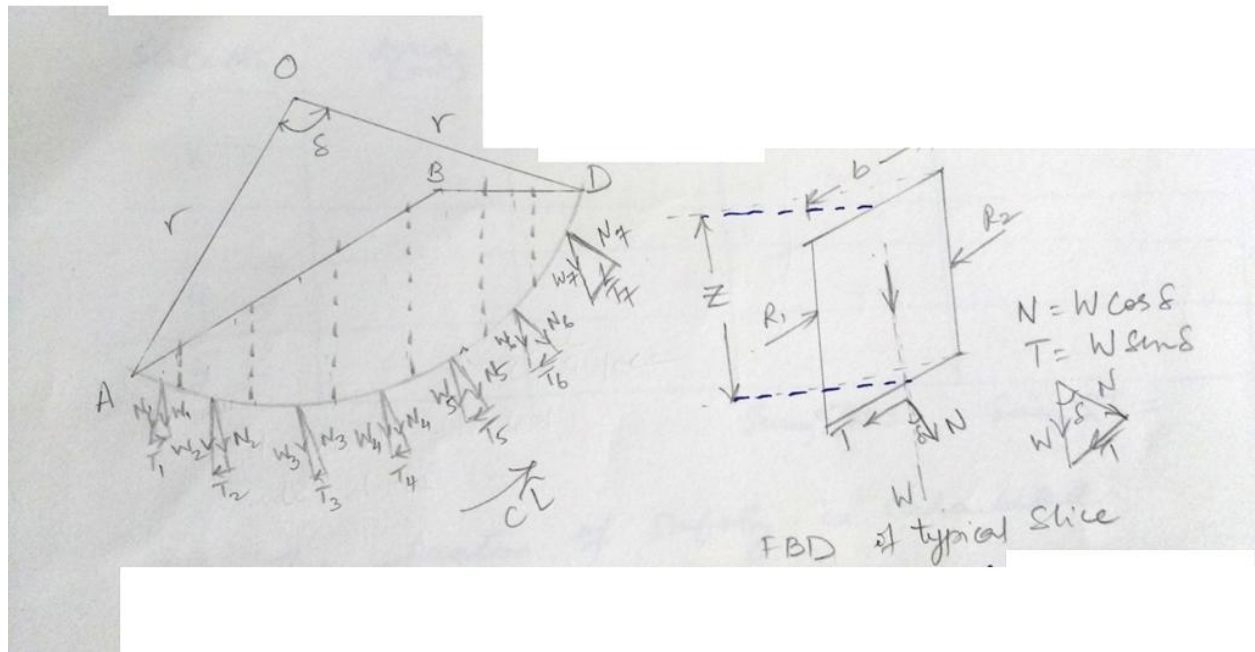 O
δ
r
r
B
D
A
N1 W1
T1
W2 N2
T2
W3 N3
T3
W4 N4
T4
W5 N5
T5
W6 N6
T6
W7 N7
T7
CL
b
Z
R1
R2
T
N
δ
W
N = W cos δ
T = W sin δ
N
δ
W
T
FBD of typical Slice